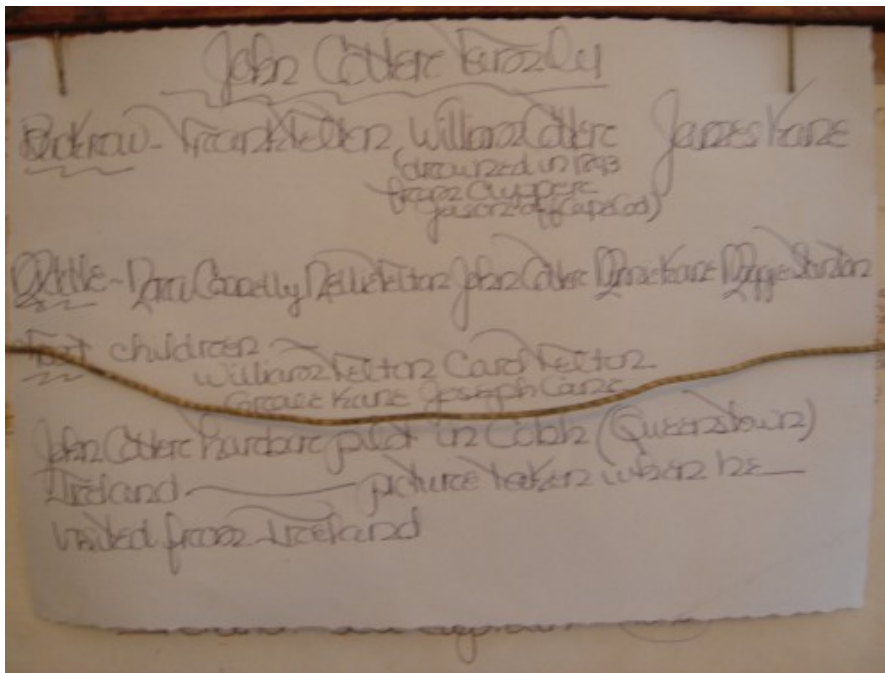 John Cotter Family
Back row - Frank Felton, William Cotter James Kane
(drowned in 1893
from Clipper
Jason off Cape Cod)
Middle - Connelly Nellie Felton John Cotter Minnie Kane Maggie
children
William Felton Carol Felton
Grace Kane Joseph Cane
John Cotter harbor pilot in Cobh (Queenstown)
Ireland picture taken when he
visited from Ireland